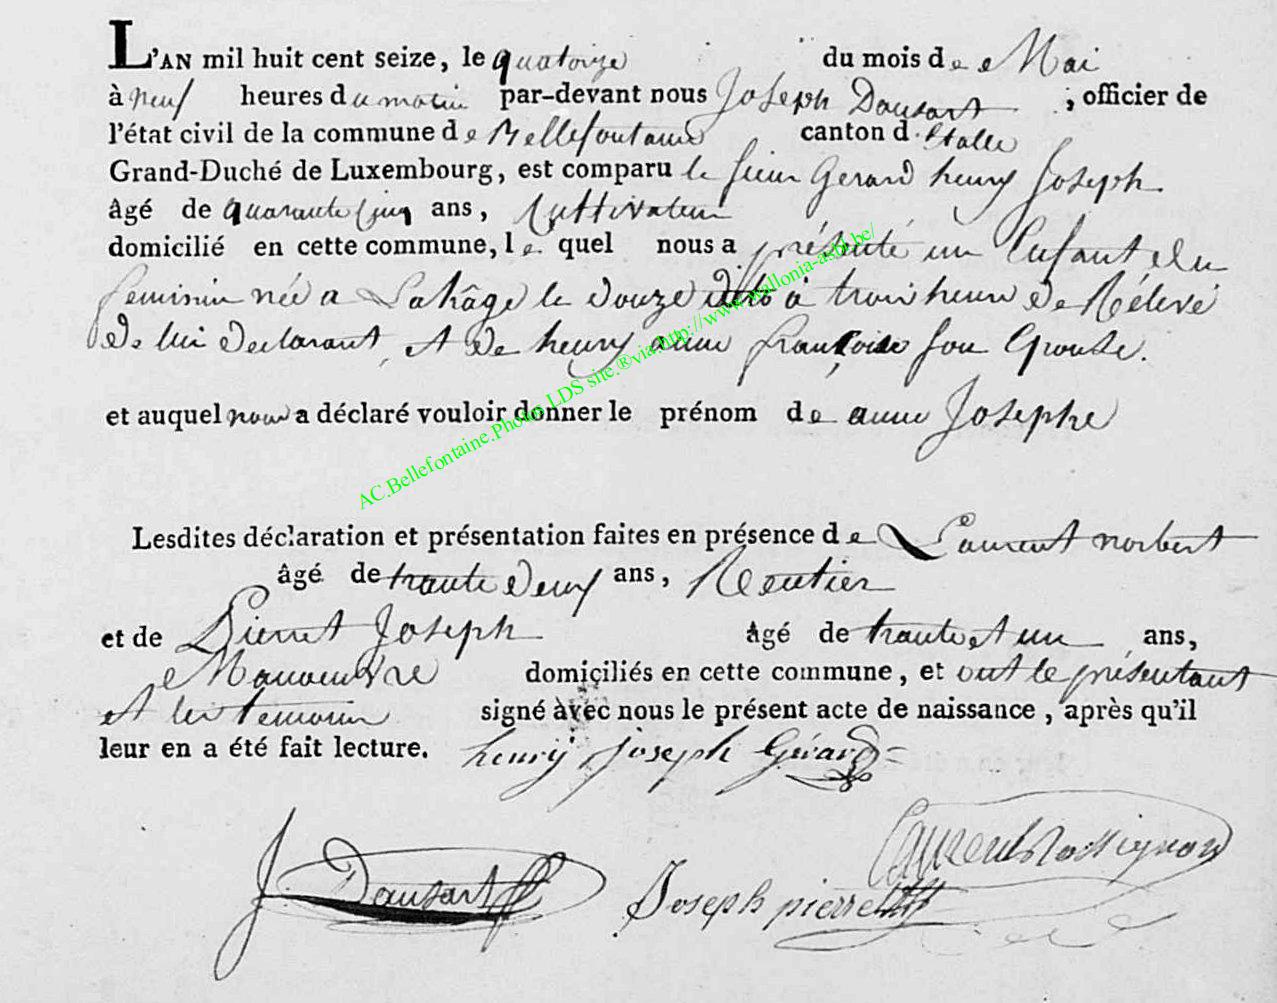 L'AN mil huit cent seize, le quatorze du mois de Mai
à neuf heures du matin par-devant nous Joseph Dausart, officier de
l'état civil de la commune de Bellefontaine canton d'Etalle
Grand-Duché de Luxembourg, est comparu le sieur Gerard henry Joseph
âgé de quarante cinq ans, Cultivateur
domicilié en cette commune, lequel nous a présenté un Enfant du
feminin née a Lahâge le douze à trois heure de Rélevé
de lui declarant, et de henry anne françoise son Epouse.
et auquel nous a déclaré vouloir donner le prénom de anne Josephe
Lesdites déclaration et présentation faites en présence de Laurent norbert
âgé de trante deux ans, Rentier
et de Pierret Joseph âgé de trante et un ans,
Manoeuvre domiciliés en cette commune, et ont le présentant
et les temoins signé avec nous le présent acte de naissance, après qu'il
leur en a été fait lecture. henry joseph Gérard
Laurent Rossignon
J Dausart Joseph pierret
AC.Bellefontaine.Photos LDS site.®via.http://www.wallonia-asbl.be/